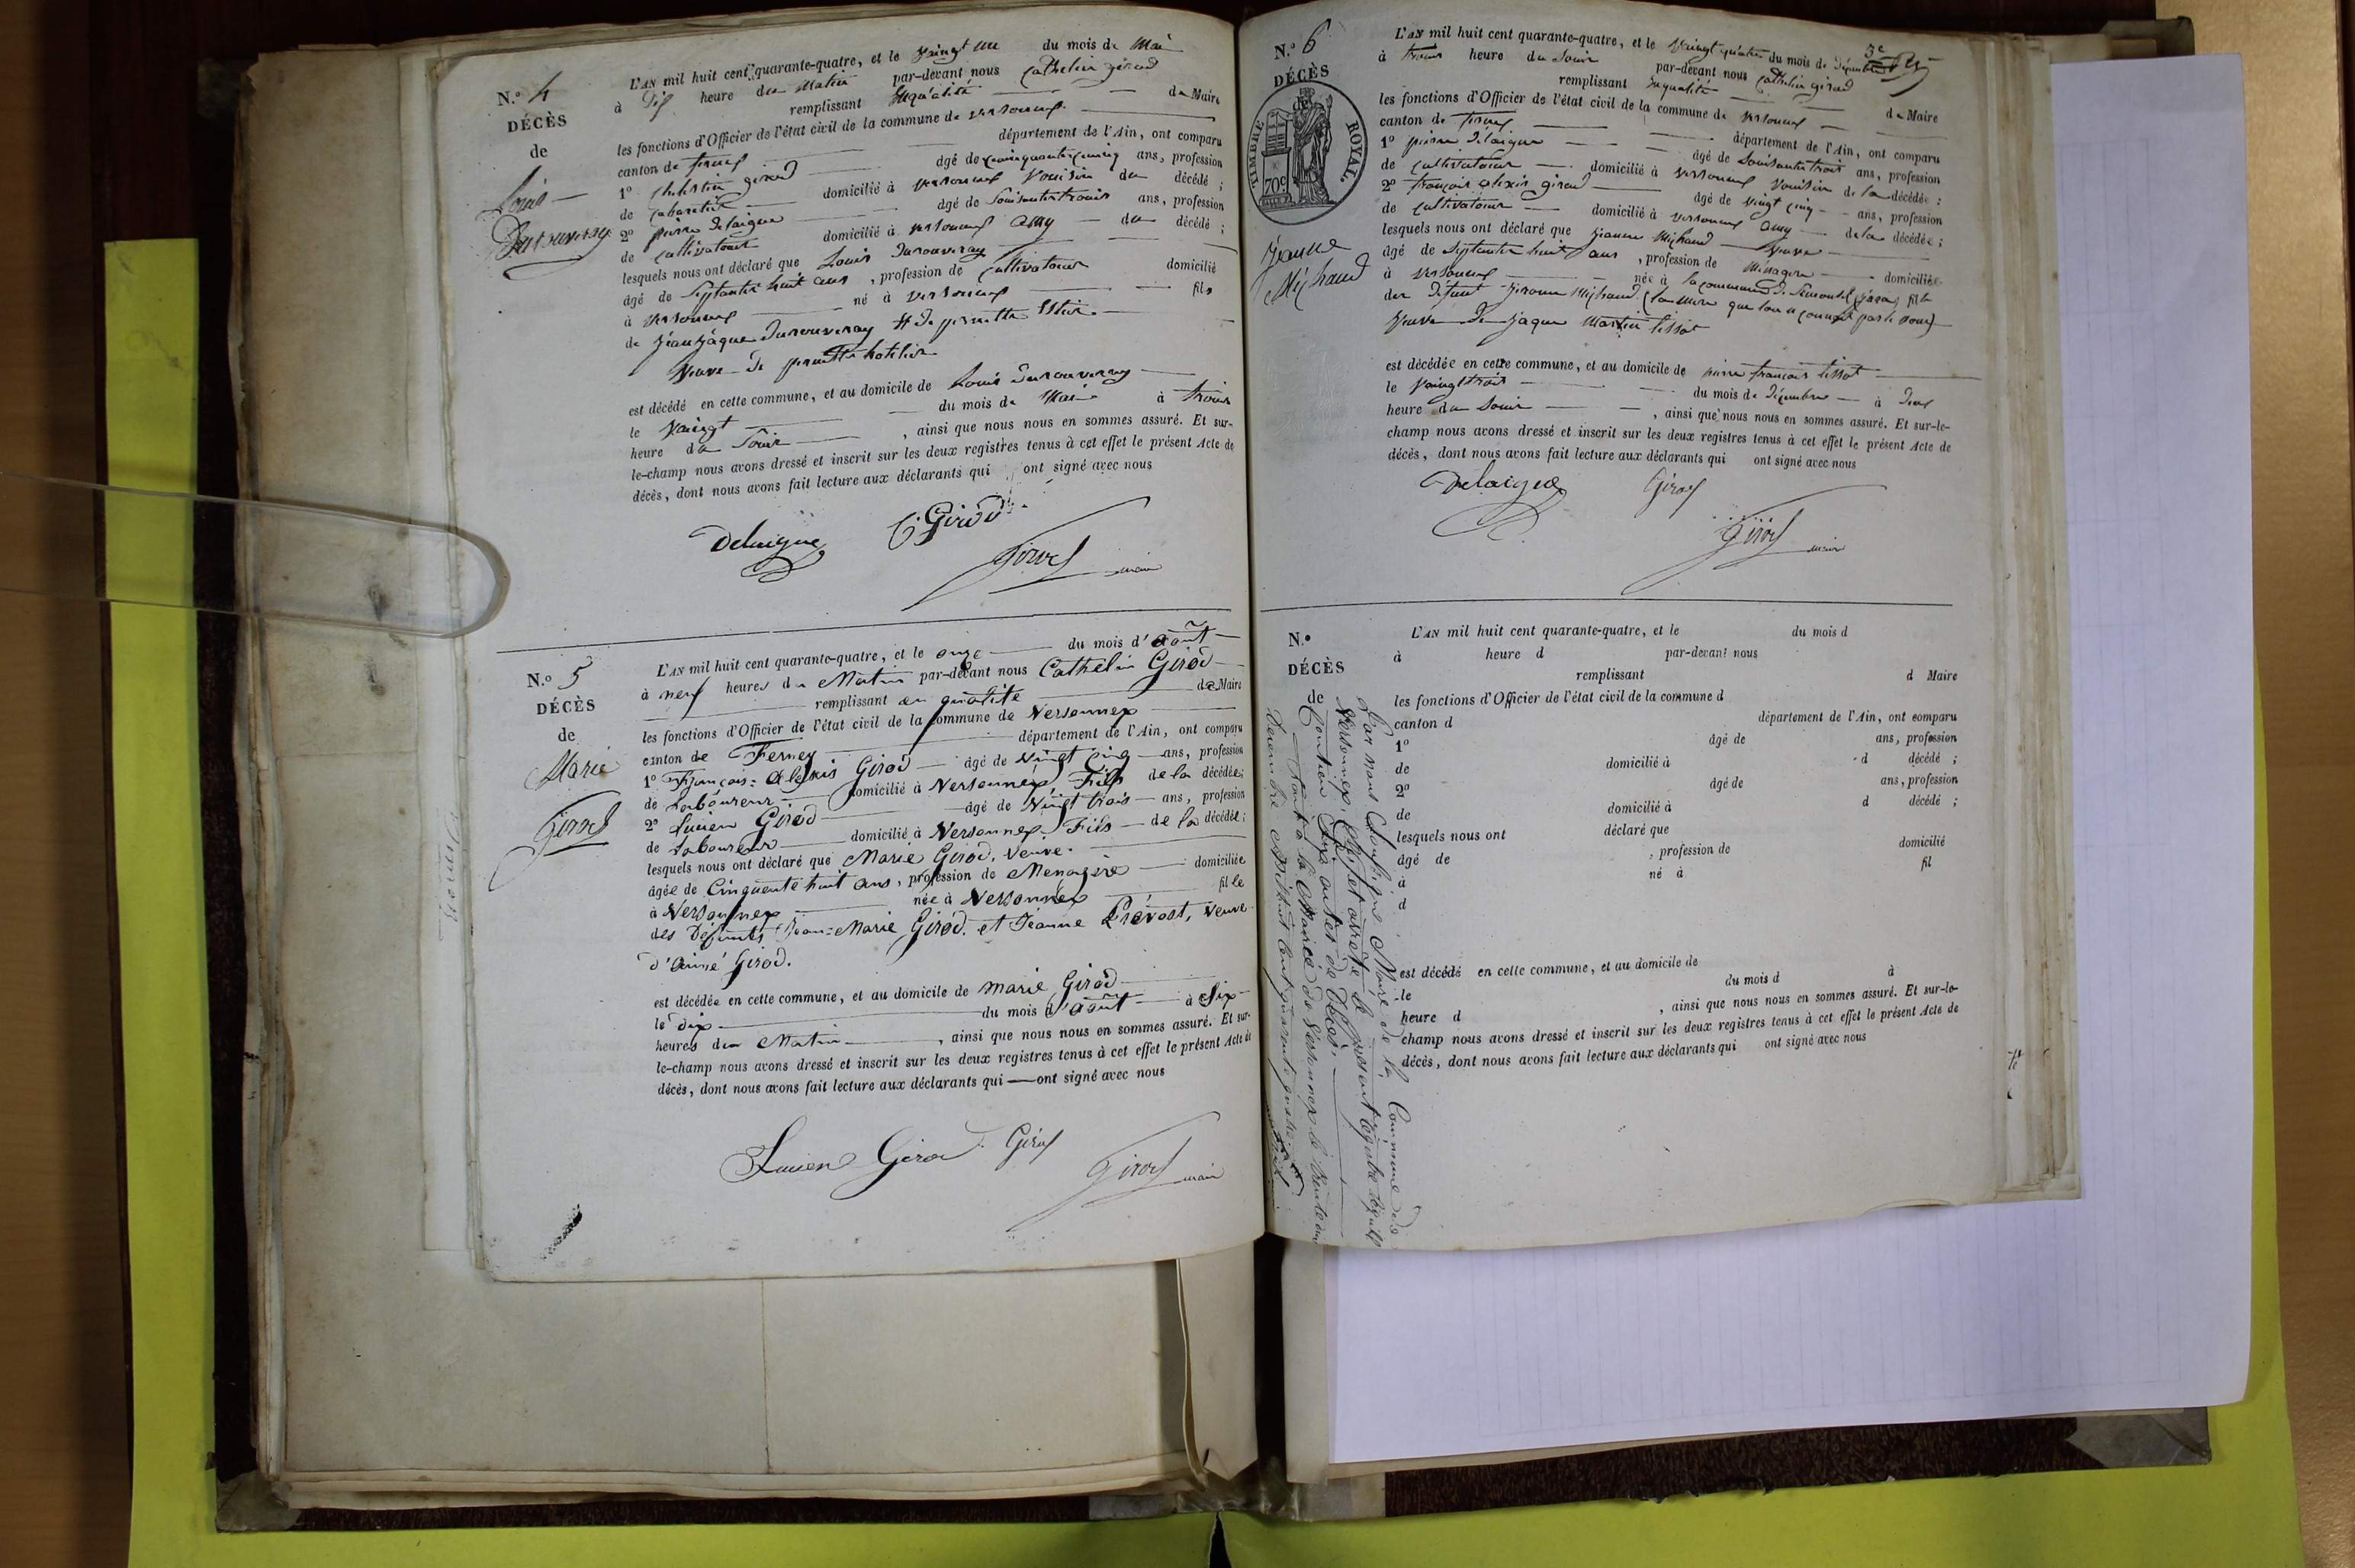 N.° 4
DÉCÈS
de
Louis
Durouveray
L'AN mil huit cent quarante-quatre, et le vaingt un du mois de Mai
à Dix heure du Matin par-devant nous Cathelin girod
remplissant enqualité de Maire
les fonctions d'Officier de l'état civil de la commune de versonnex
canton de ferney département de l'Ain, ont comparu
1° girod âgé de cainquante cainq ans, profession
de Cabaretié domicilié à versonnex vouisin du décédé ;
2° pierre Delaigue âgé de Souisante trouis ans, profession
de Cultivatour domicilié à versonnex amy du décédé ;
lesquels nous ont déclaré que Louis Durouveray
âgé de Septante huit ans , profession de Cultivatour domicilié
à versonnex né à versonnex fils
de jeanjâque Durouveray # de pernette
veuve de pernette
est décédé en cette commune, et au domicile de Louis Durouveray
le vaingt du mois de Mai à trouis
heure du Souir , ainsi que nous nous en sommes assuré. Et sur-
le-champ nous avons dressé et inscrit sur les deux registres tenus à cet effet le présent Acte de
décès, dont nous avons fait lecture aux déclarants qui ont signé avec nous
Delaigue Girod
Girod maire
N.° 5
DÉCÈS
de
Marie
Girod
L'AN mil huit cent quarante-quatre, et le onze du mois d'août
à neuf heures du Matin par-devant nous Cathelin Girod
remplissant en qualité de Maire
les fonctions d'Officier de l'état civil de la commune de Versonnex
canton de Ferney département de l'Ain, ont comparu
1° François=Alexis Girod âgé de Vingt Cinq ans, profession
de Laboureur domicilié à Versonnex, Fils de la décédée;
2° Lucien Girod âgé de Vingt trois ans, profession
de Laboureur domicilié à Versonnex, Fils de la décédée;
lesquels nous ont déclaré que Marie Girod, Veuve
âgée de Cinquante huit ans, profession de Menagère domiciliée
à Versonnex née à Versonnex fille
des Défunts Jean=Marie Girod. et Jeanne Prévost, Veuve
d'aimé Girod.
est décédée en cette commune, et au domicile de marie Girod
le dix du mois d'août à Six
heures du Matin , ainsi que nous nous en sommes assuré. Et sur-
le-champ nous avons dressé et inscrit sur les deux registres tenus à cet effet le présent Acte de
décès, dont nous avons fait lecture aux déclarants qui ont signé avec nous
Lucien Girod Girod
Girod maire
N.° 6
DÉCÈS
de
TIMBRE ROYAL.
70c
Jeanne
Michaud
3e
L'AN mil huit cent quarante-quatre, et le vaingt quatre du mois de Décembre
à trouis heure du Souir par-devant nous Cathelin girod
remplissant enqualité de Maire
les fonctions d'Officier de l'état civil de la commune de versonnex
canton de ferney département de l'Ain, ont comparu
1° pierre Delaigue âgé de Souisante trois ans, profession
de Cultivatour domicilié à versonnex vouisin de la décédée :
2° françois alexis girod âgé de vingt cinq ans, profession
de Cultivatour domicilié à versonnex amy de la décédée ;
lesquels nous ont déclaré que jeanne Michaud veuve
âgé de Septante huit ans , profession de Ménagere domiciliée
à versonnex née à la commune de (jura) fille
der Défunt Michaud. (la mere que lon ne connoit pas le nom)
veuve de jaque Martin tissot
est décédée en cette commune, et au domicile de pierre françois tissot
le vaingt trois du mois de Décembre à Deux
heure du Souir , ainsi que nous nous en sommes assuré. Et sur-le-
champ nous avons dressé et inscrit sur les deux registres tenus à cet effet le présent Acte de
décès, dont nous avons fait lecture aux déclarants qui ont signé avec nous
Delaigue Girod
Girod maire
N.°
DÉCÈS
de
L'AN mil huit cent quarante-quatre, et le du mois d
à heure d par-devant nous
remplissant d Maire
les fonctions d'Officier de l'état civil de la commune d
canton d département de l'Ain, ont comparu
1° âgé de ans, profession
de domicilié à d décédé ;
2° âgé de ans, profession
de domicilié à d décédé ;
lesquels nous ont déclaré que
âgé de , profession de domicilié
à né à fil
d
est décédé en cette commune, et au domicile de
le du mois d à
heure d , ainsi que nous nous en sommes assuré. Et sur-le-
champ nous avons dressé et inscrit sur les deux registres tenus à cet effet le présent Acte de
décès, dont nous avons fait lecture aux déclarants qui ont signé avec nous
Par nous Maire de la Commune de
Versonnex, Clos et arrêté le présent régistre lequel
Contien Six actes de Décès.
Fait à la Mairie de Versonnex le Trente un
décembre mil huit Cent quarante quatre